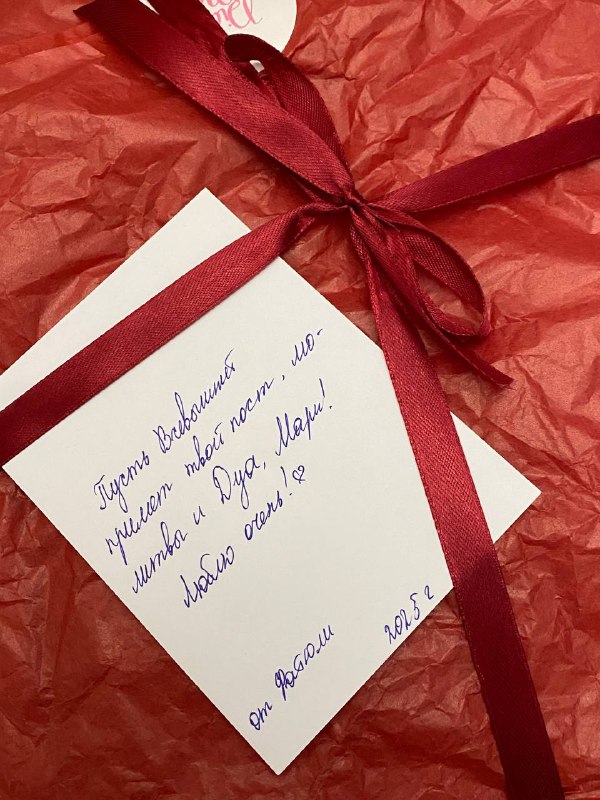 Пусть Всевышний
примет твой пост, мо-
литвы и Дуа, Мари!
Люблю очень!♡
от Фатюли
2025 г